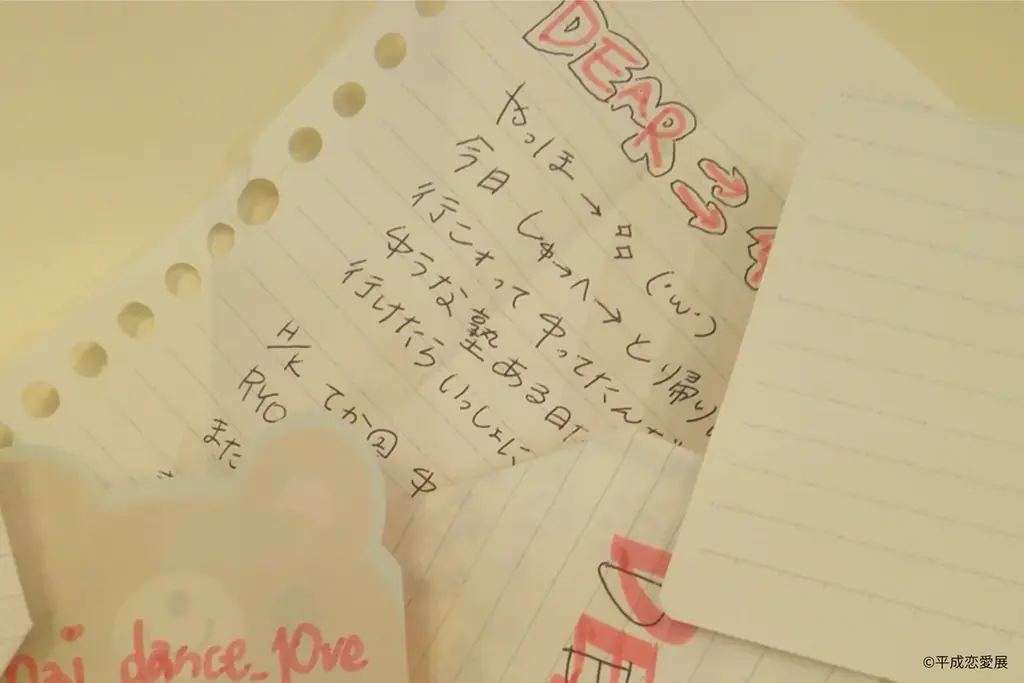 DEAR
やっほ→ 品 (・ω・)
今日 しゅっへ→と帰り
行こォって ゆってたん
ゆうな塾ある日
行けたら いっしょに
H/K てか回 ゆ
RYO
また
DE
nai_dance_10ve
©平成恋愛展